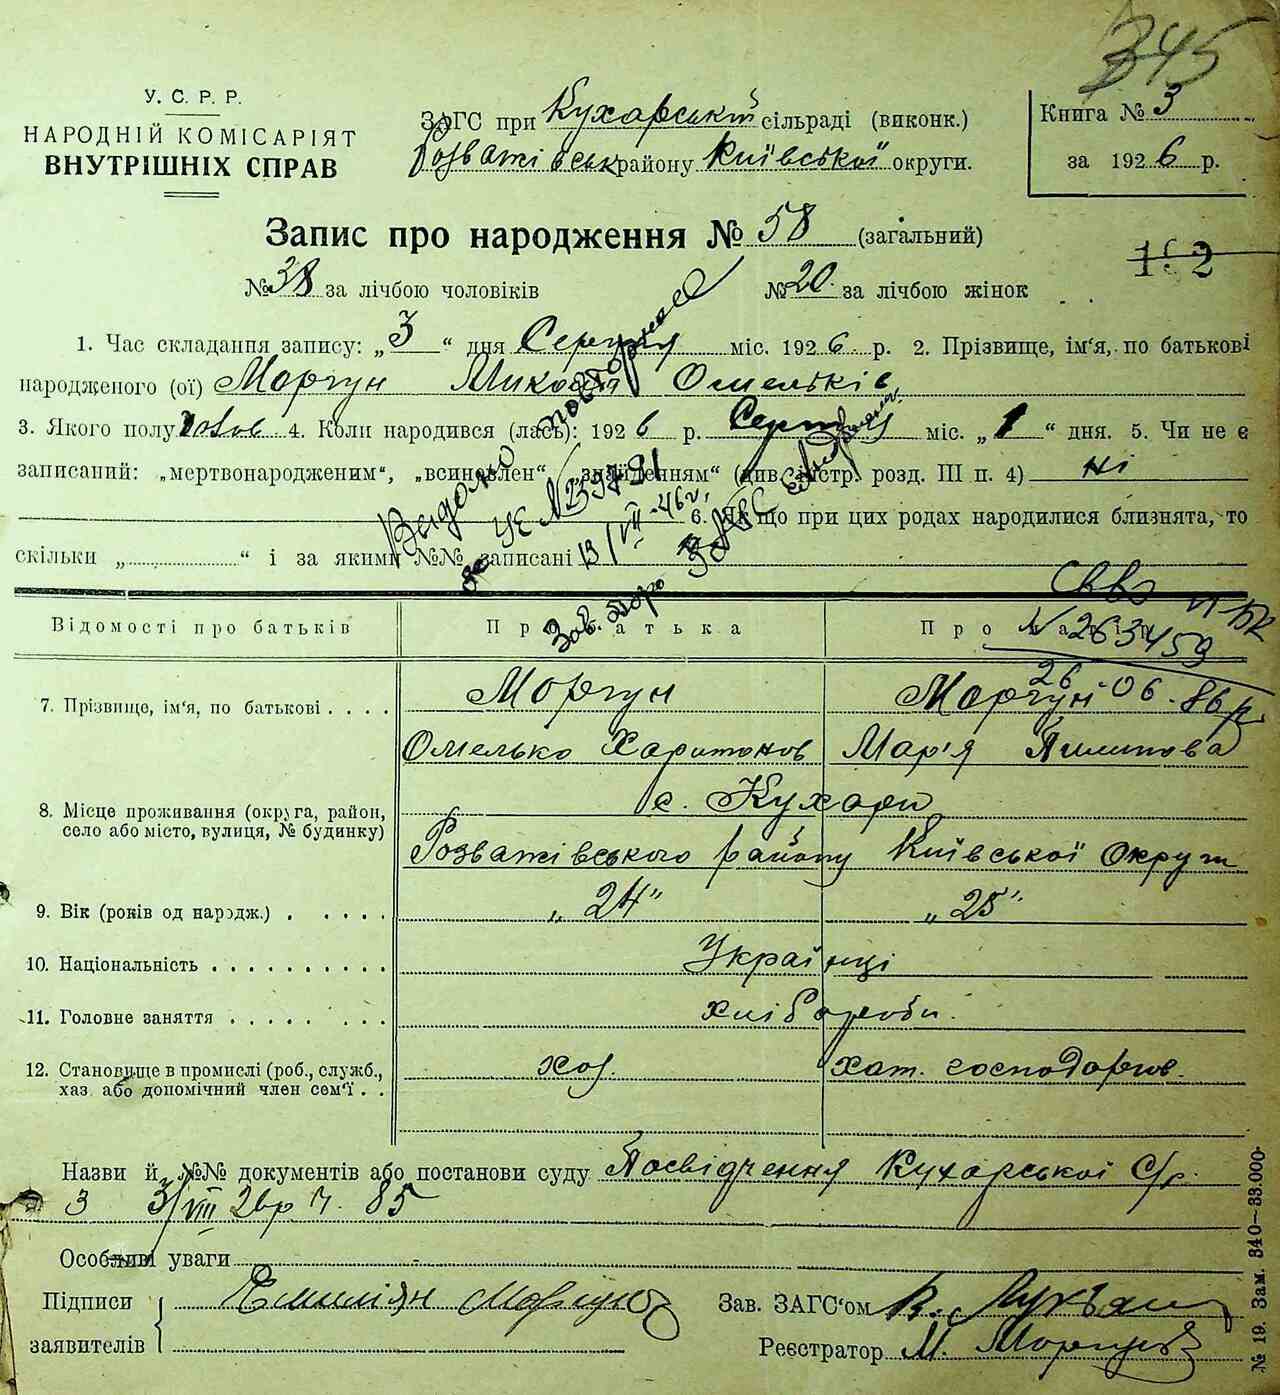 345
У. С. Р. Р.
НАРОДНІЙ КОМІСАРІЯТ
ВНУТРІШНІХ СПРАВ
ЗАГС при Кухарській сільраді (виконк.)
Розважівськ району Київської округи.
Книга № 3
за 1926 р.
Запис про народження № 58 (загальний)
192
№ 38 за лічбою чоловіків № 20 за лічбою жінок
1. Час складання запису: „3“ дня Серпня міс. 1926 р. 2. Прізвище, ім'я, по батькові
народженого (ої) Моргун Микола Омельків
3. Якого полу чолов. 4. Коли народився (лась): 1926 р. Серпня міс. „1“ дня. 5. Чи не є
записаний: „мертвонародженим“, „всиновлен“, „знайденням“ (див. інстр. розд. III п. 4) ні
6. Якщо при цих родах народилися близнята, то
скільки „ “ і за якими №№ записані
Видано повторное
УЕ №
13/VII-46 г.
Зав. бюро ЗАГС
Свво
VI-БК
№ 263459
26-06-86 р.
Відомості про батьків Про батька Про матір
7. Прізвище, ім'я, по батькові . . . . Моргун Моргун
Омелько Харитонов Мар'я Пилипова
8. Місце проживання (округа, район, село або місто, вулиця, № будинку) с. Кухари
Розважівського району Київської Округи
9. Вік (років од народж.) . . . . . „24“ „25“
10. Національність . . . . . . . . . . Українці
11. Головне заняття . . . . . . . . Хлібороби.
12. Становище в промислі (роб., служб., хаз. або допомічний член сем'ї . . хоз. хат. господарюв.
Назви й №№ документів або постанови суду Посвідчення Кухарської С/р.
з 3/VIII 26 р ч. 85
Особливі уваги
Підписи заявителів Емиліян Моргун
Зав. ЗАГС'ом
Реєстратор М. Моргун
№ 19. Зам. 340—33.000·